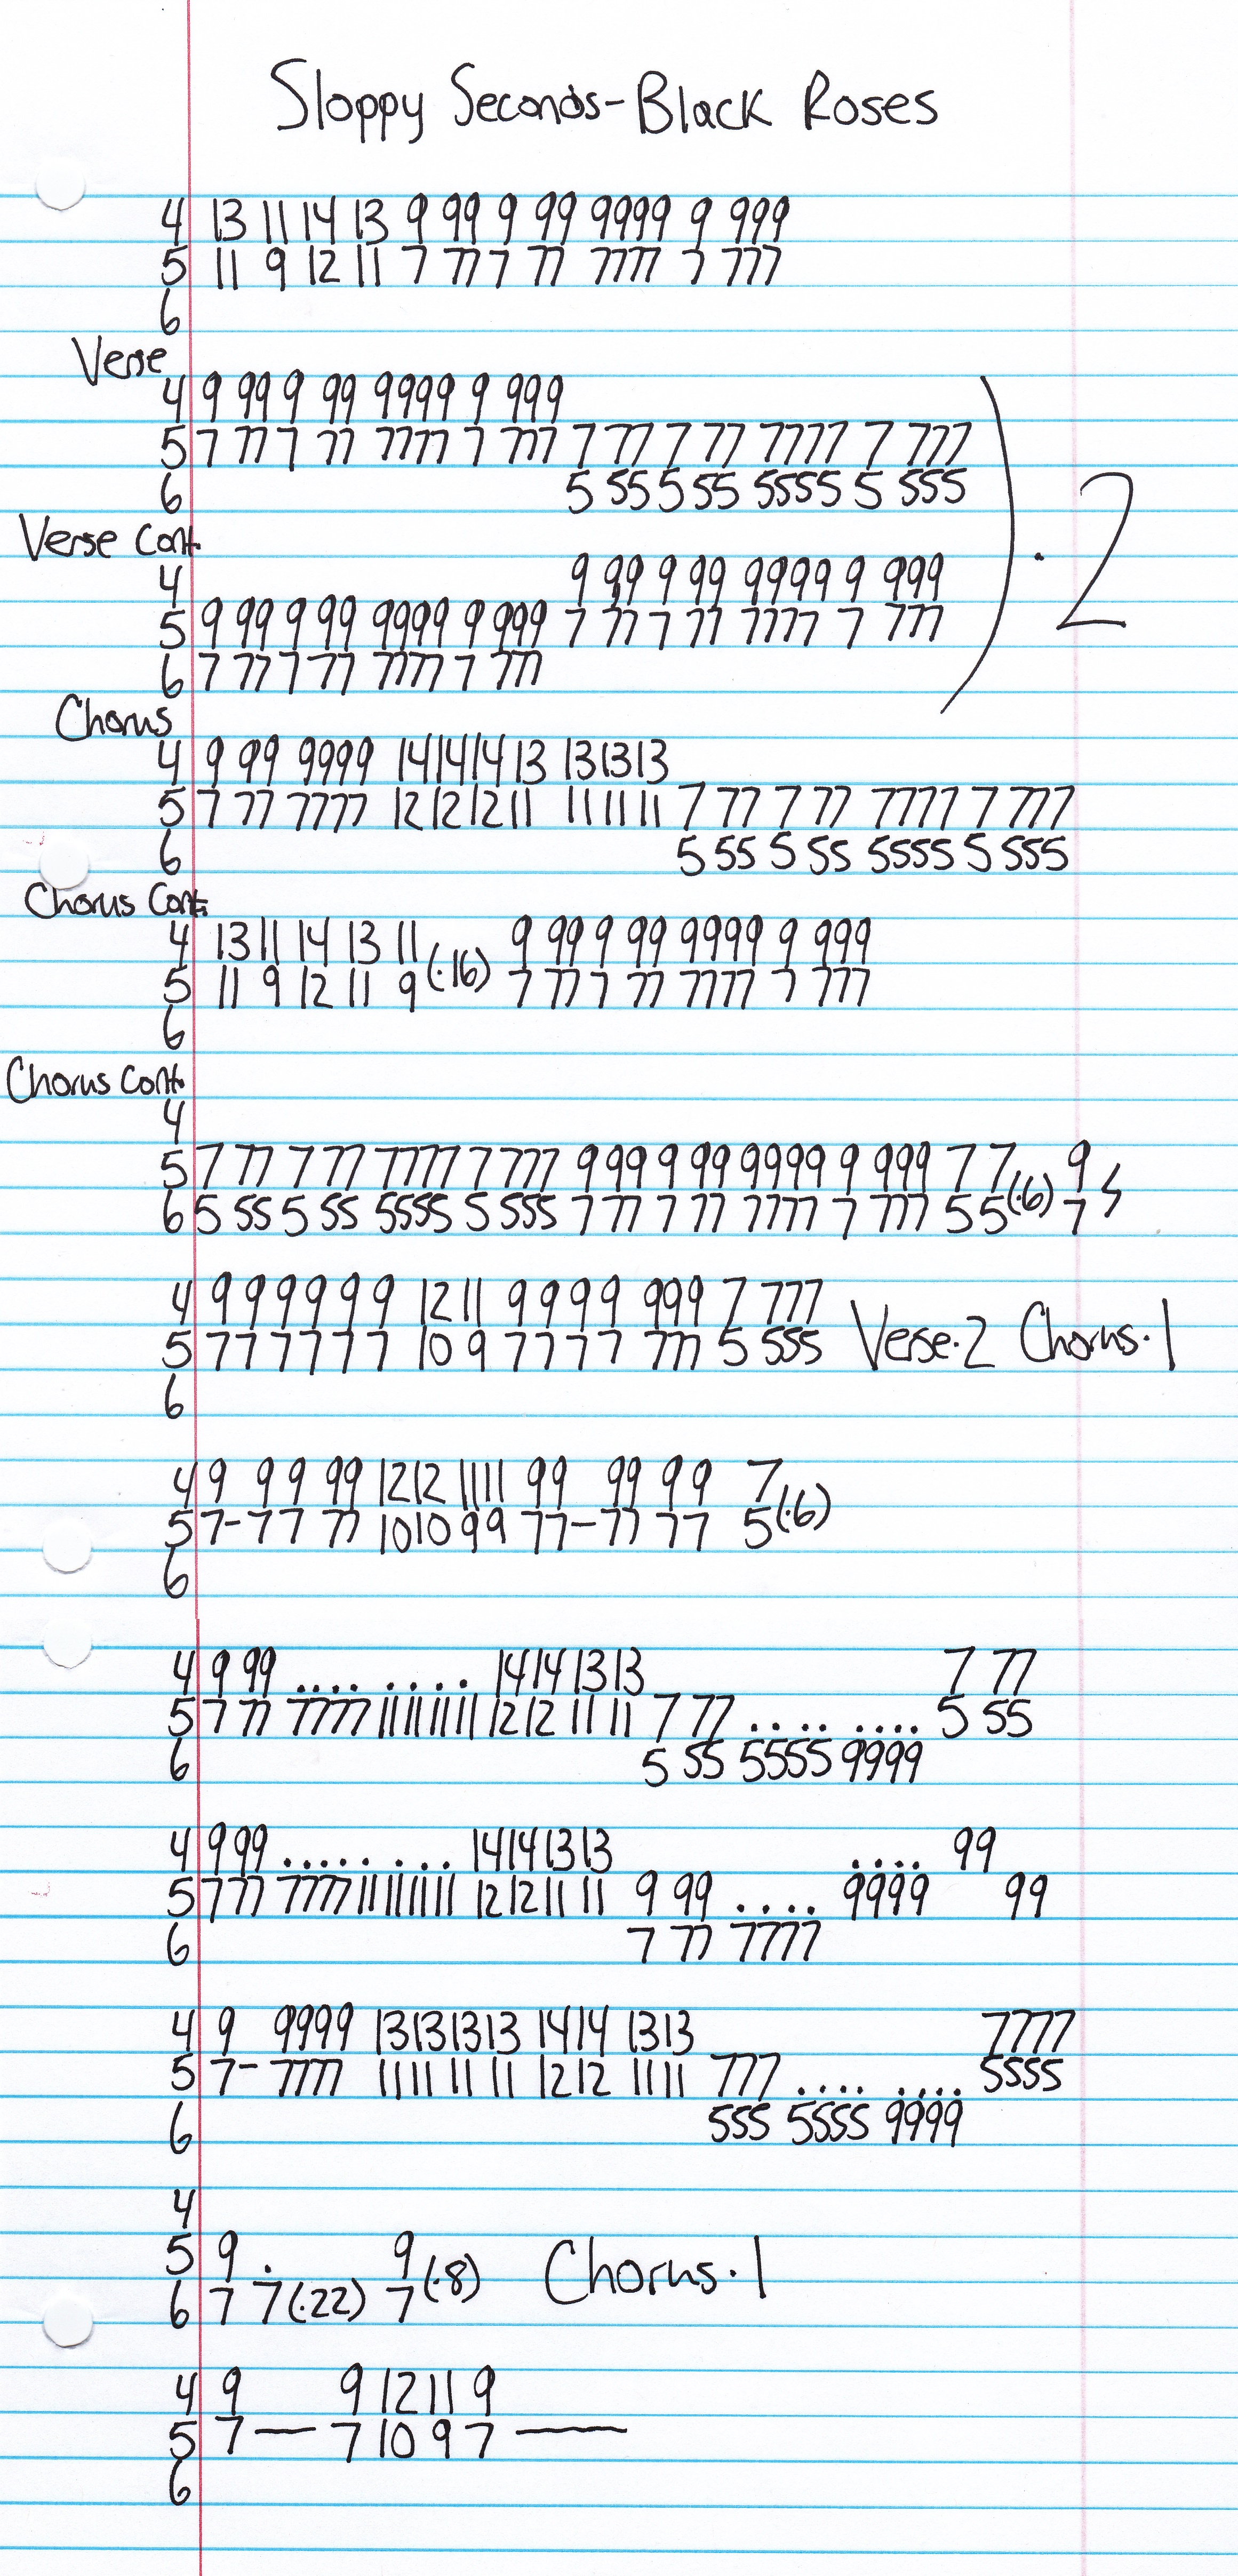 Sloppy Seconds-Black Roses
4 13 11 14 13 9 99 9 99 9999 9 999
5 11 9 12 11 7 77 7 77 7777 7 777
6
Verse
4 9 99 9 99 9999 9 999
5 7 77 7 77 7777 7 777 7 77 7 77 7777 7 777
6 5 55 5 55 5555 5 555
) · 2
Verse Cont.
4 9 99 9 99 9999 9 999
5 9 99 9 99 9999 9 999 7 77 7 77 7777 7 777
6 7 77 7 77 7777 7 777
Chorus
4 9 99 9999 14141413 131313
5 7 77 7777 12121211 111111 7 77 7 77 7777 7 777
6 5 55 5 55 5555 5 555
Chorus Cont.
4 13 11 14 13 11 (·16) 9 99 9 99 9999 9 999
5 11 9 12 11 9 7 77 7 77 7777 7 777
6
Chorus Cont.
4
5 7 77 7 77 7777 7 777 9 99 9 99 9999 9 999 7 7 (·6) 9
6 5 55 5 55 5555 5 555 7 77 7 77 7777 7 777 5 5 7
4 9 9 9 9 9 9 12 11 9 9 9 9 999 7 777
5 7 7 7 7 7 7 10 9 7 7 7 7 777 5 555 Verse·2 Chorus·1
6
4 9 9 9 99 1212 1111 99 99 99 7
5 7-7 7 77 1010 99 77-77 77 5 (·6)
6
4 9 99 .... .... 14141313 7 77
5 7 77 7777 11111111 12121111 7 77 .... .... 5 55
6 5 55 5555 9999
4 999 .... .... 14141313 .... 99
5 777 7777 11111111 12121111 9 99 .... 9999 99
6 7 77 7777
4 9 9999 13131313 1414 1313 7777
5 7- 7777 11111111 1212 1111 777 .... .... 5555
6 555 5555 9999
4
5 9 . 9
6 7 7(·22) 7 (·8) Chorus·1
4 9 9 12 11 9
5 7 — 7 10 9 7 —
6